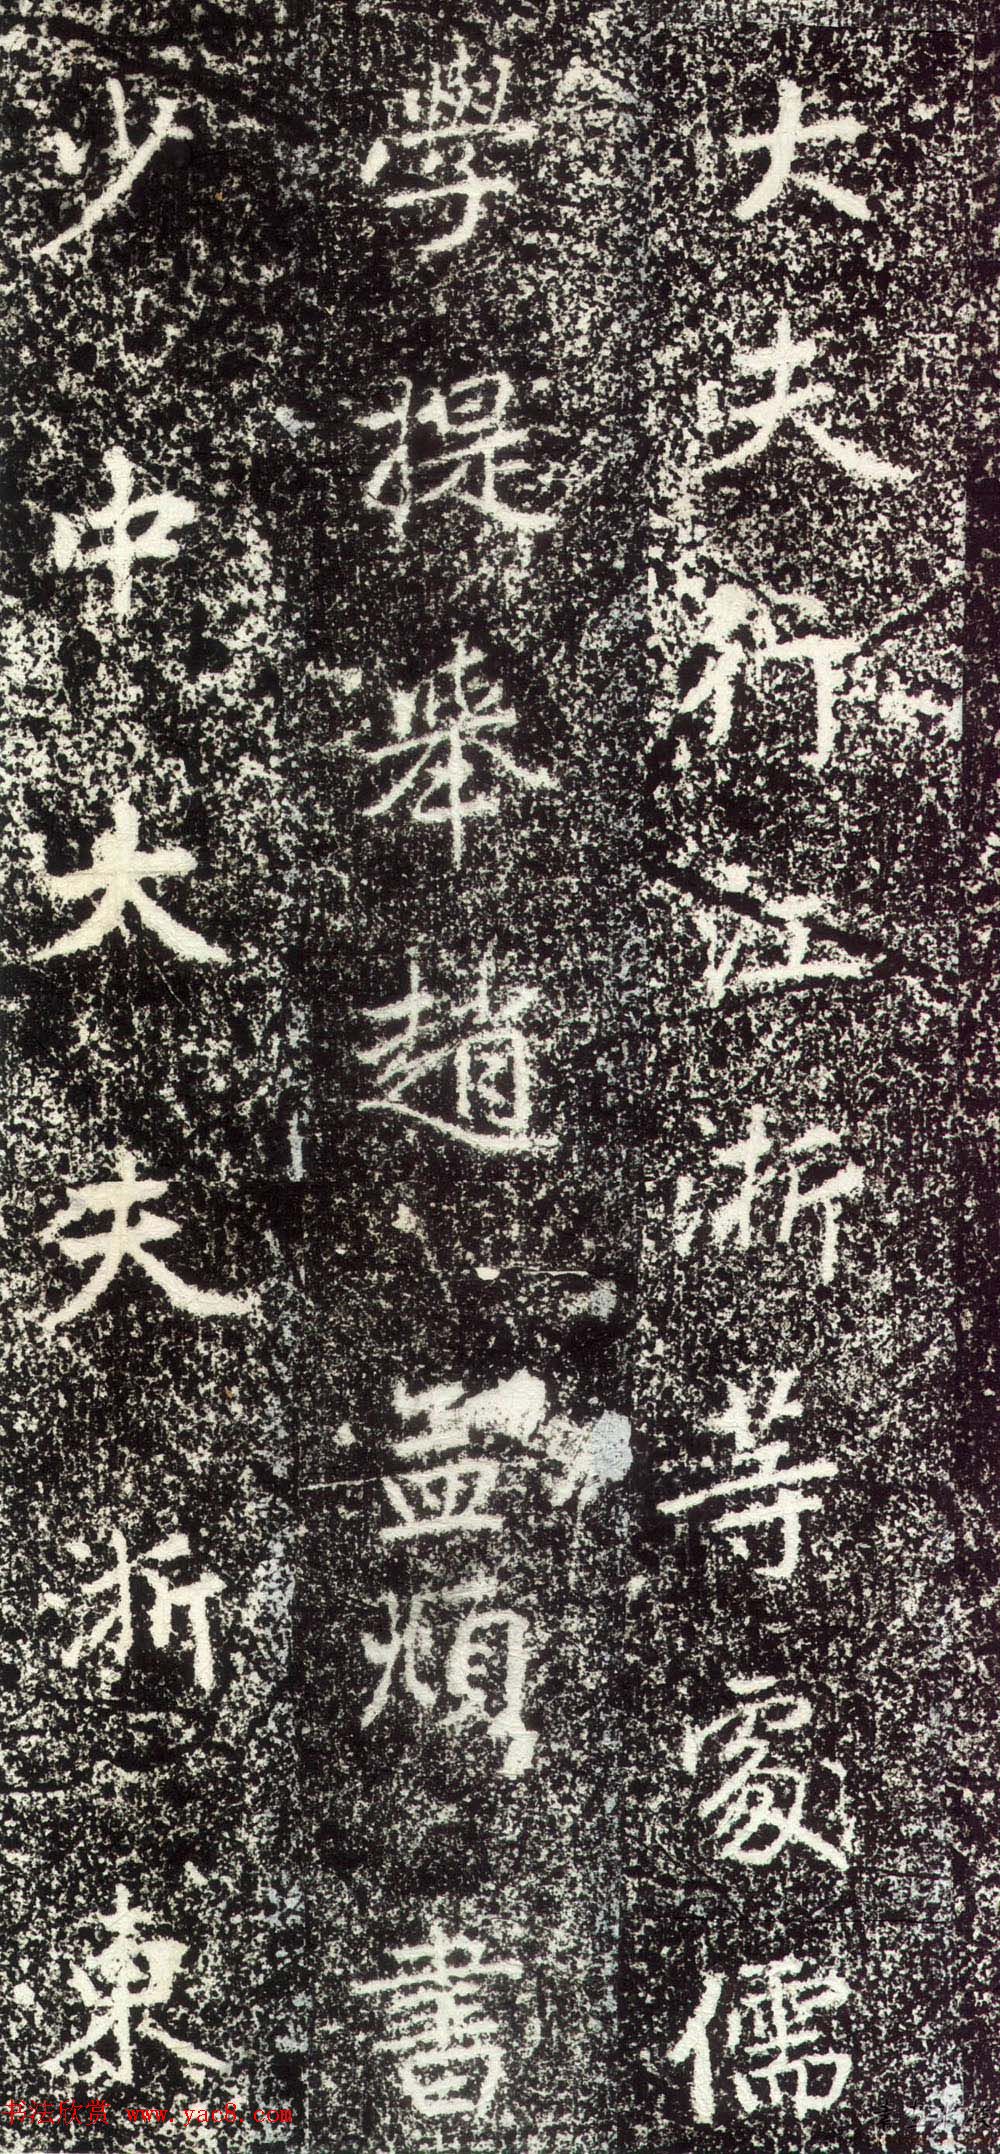 大夫行江浙等處儒
學提舉趙孟頫書
少中大夫浙東
书法欣赏 www.yac8.com